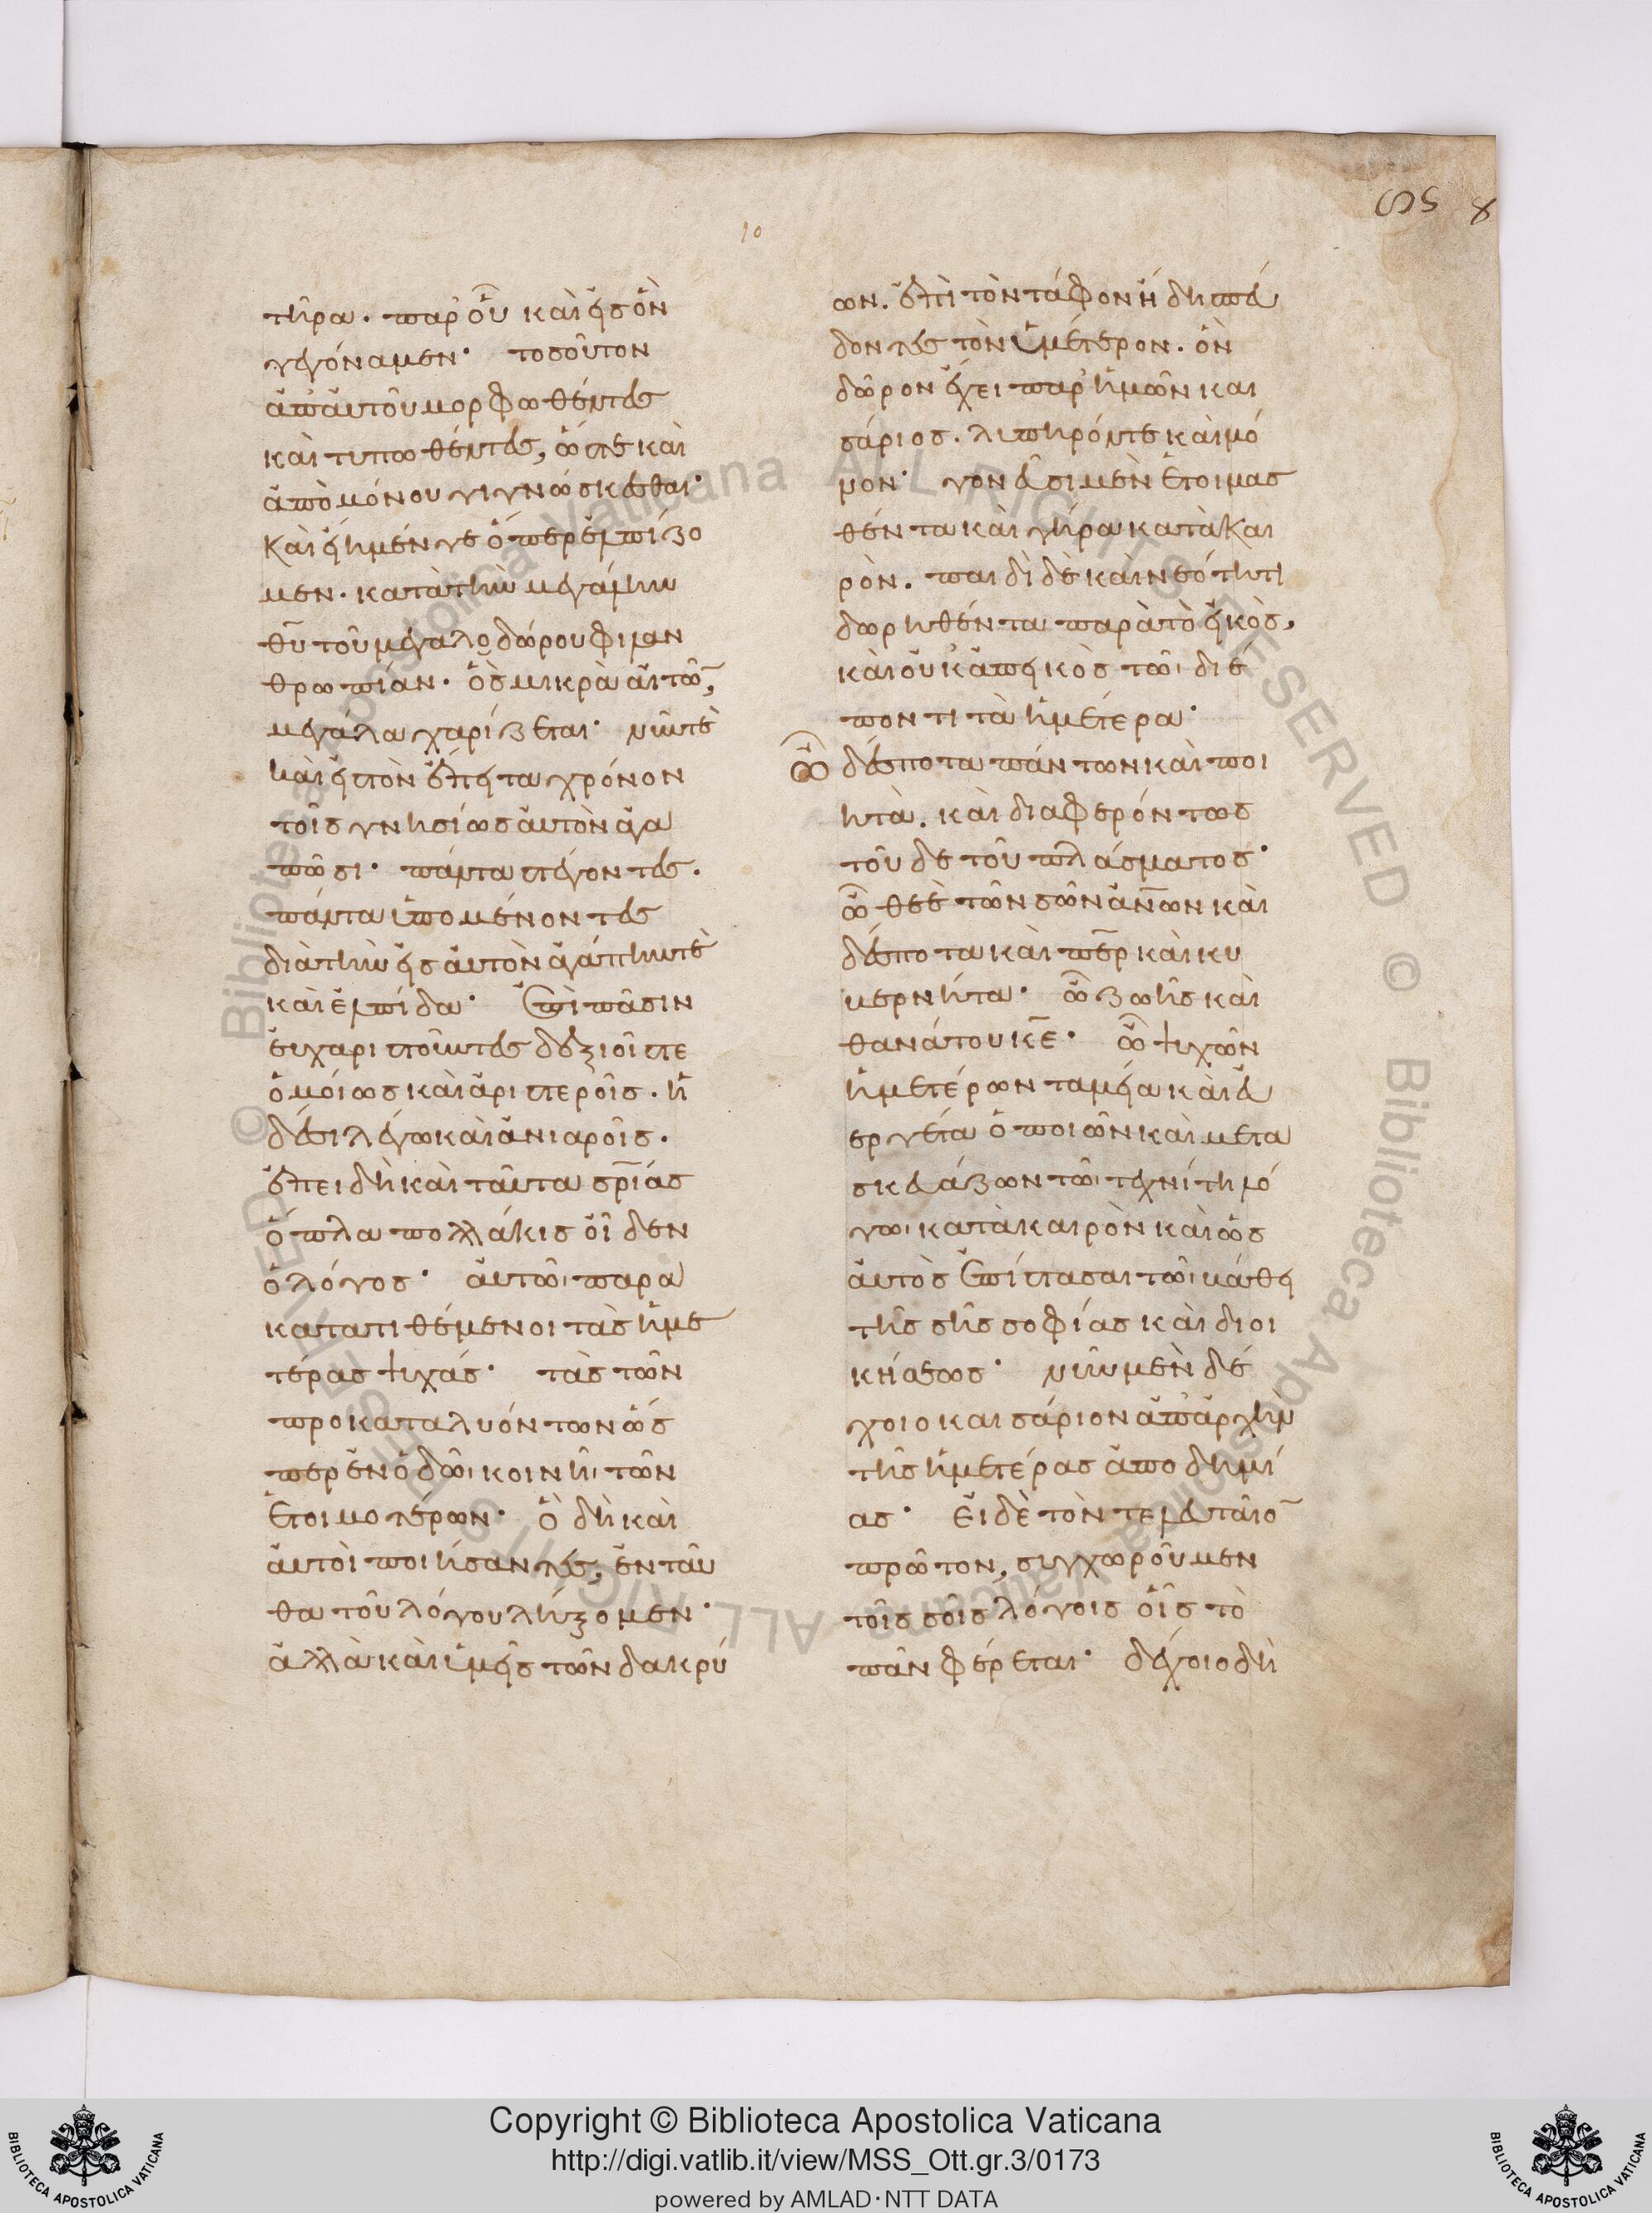 10
τῆρα. παρ' οὗ καὶ εἰς ὃν
γεγόναμεν· τοσοῦτον
ἀπ' αὐτοῦ μορφωθέντες
καὶ τυπωθέντες, ὥστε καὶ
ἀπὸ μόνου γιγνώσκεσθαι·
καὶ εἴημέν γε ὅπερ ἐλπίζο
μεν. κατὰ τὴν μεγάλην
θ̅υ̅ τοῦ μεγαλοδώρου φιλαν
θρωπίαν. ὃς μικρὰ αἰτῶ̅,
μεγάλα χαρίζεται· νῦν τὲ
καὶ εἰς τὸν ἔπειτα χρόνον
τοῖς γνησίως αὐτὸν ἀγα
πῶσι· πάντα στέγοντες.
πάντα ὑπομένοντες
διὰ τὴν εἰς αὐτὸν ἀγάπην τὲ
καὶ ἐλπίδα· ἐπὶ πᾶσιν
εὐχαριστοῦντες δεξιοῖς τε
ὁμοίως καὶ ἀριστεροῖς. ἡ
δέσι λέγω καὶ ἀνιαροῖς.
ἐπειδὴ καὶ ταῦτα σ̅ρ̅ίας
ὅπλα πολλάκις οἶδεν
ὁ λόγος· αὐτῶι παρα
κατατιθέμενοι τὰς ἡμε
τέρας ψυχάς· τὰς τῶν
προκαταλυόντων ὥσ
περ ἐν ὁδῶι κοινῆι τῶν
ἑτοιμοτέρων· ὃ δὴ καὶ
αὐτοὶ ποιήσαντες, ἐνταῦ
θα τοῦ λόγου λήξομεν·
ἀλλὰ καὶ ὑμεῖς τῶν δακρύ
ων. ἐπὶ τὸν τάφον ἤδη σπεύ
δοντες τὸν ὑμέτερον. ὃν
δῶρον ἔχει παρ' ἡμῶν και
σάριος. λυπηρόν τε καὶ μό
νον· γονεῦσι μὲν ἑτοιμασ
θέντα καὶ γήρα κατὰ και
ρὸν. παιδὶ δὲ καὶ νεότητι
δωρηθέντα παρὰ τὸ εἰκὸς,
καὶ οὐκ ἀπεικὸς τῶι διέ
ποντι τὰ ἡμέτερα·
ὦ δέσποτα πάντων καὶ ποι
ητὰ. καὶ διαφερόντως
τοῦδε τοῦ πλάσματος·
ὦ θεὲ τῶν σῶν ἀν̅ων καὶ
δέσποτα καὶ π̅ε̅ρ καὶ κυ
βερνήτα· ὦ ζωῆς καὶ
θανάτου κ̅ε̅· ὦ ψυχῶν
ἡμετέρων ταμεία καὶ εὐ
εργέτα ὁ ποιῶν καὶ μετα
σκευάζων τῶι τεχνίτη λό
γωι κατὰ καιρὸν καὶ ὡς
αὐτὸς ἐπίστασαι τῶι βάθει
τῆς σῆς σοφίας καὶ διοι
κήσεως· νῦν μὲν δέ
χοιο καισάριον ἀπαρχὴν
τῆς ἡμετέρας ἀποδημί
ας· εἰ δὲ τὸν τελευταῖο̅
πρῶτον, συγχωροῦμεν
τοῖς σοῖς λόγοις οἷς τὸ
πᾶν φέρεται· δέχοιο δὴ
© Biblioteca Apostolica Vaticana ALL RIGHTS RESERVED
Copyright © Biblioteca Apostolica Vaticana
http://digi.vatlib.it/view/MSS_Ott.gr.3/0173
powered by AMLAD·NTT DATA
BIBLIOTECA APOSTOLICA VATICANA
BIBLIOTECA APOSTOLICA VATICANA